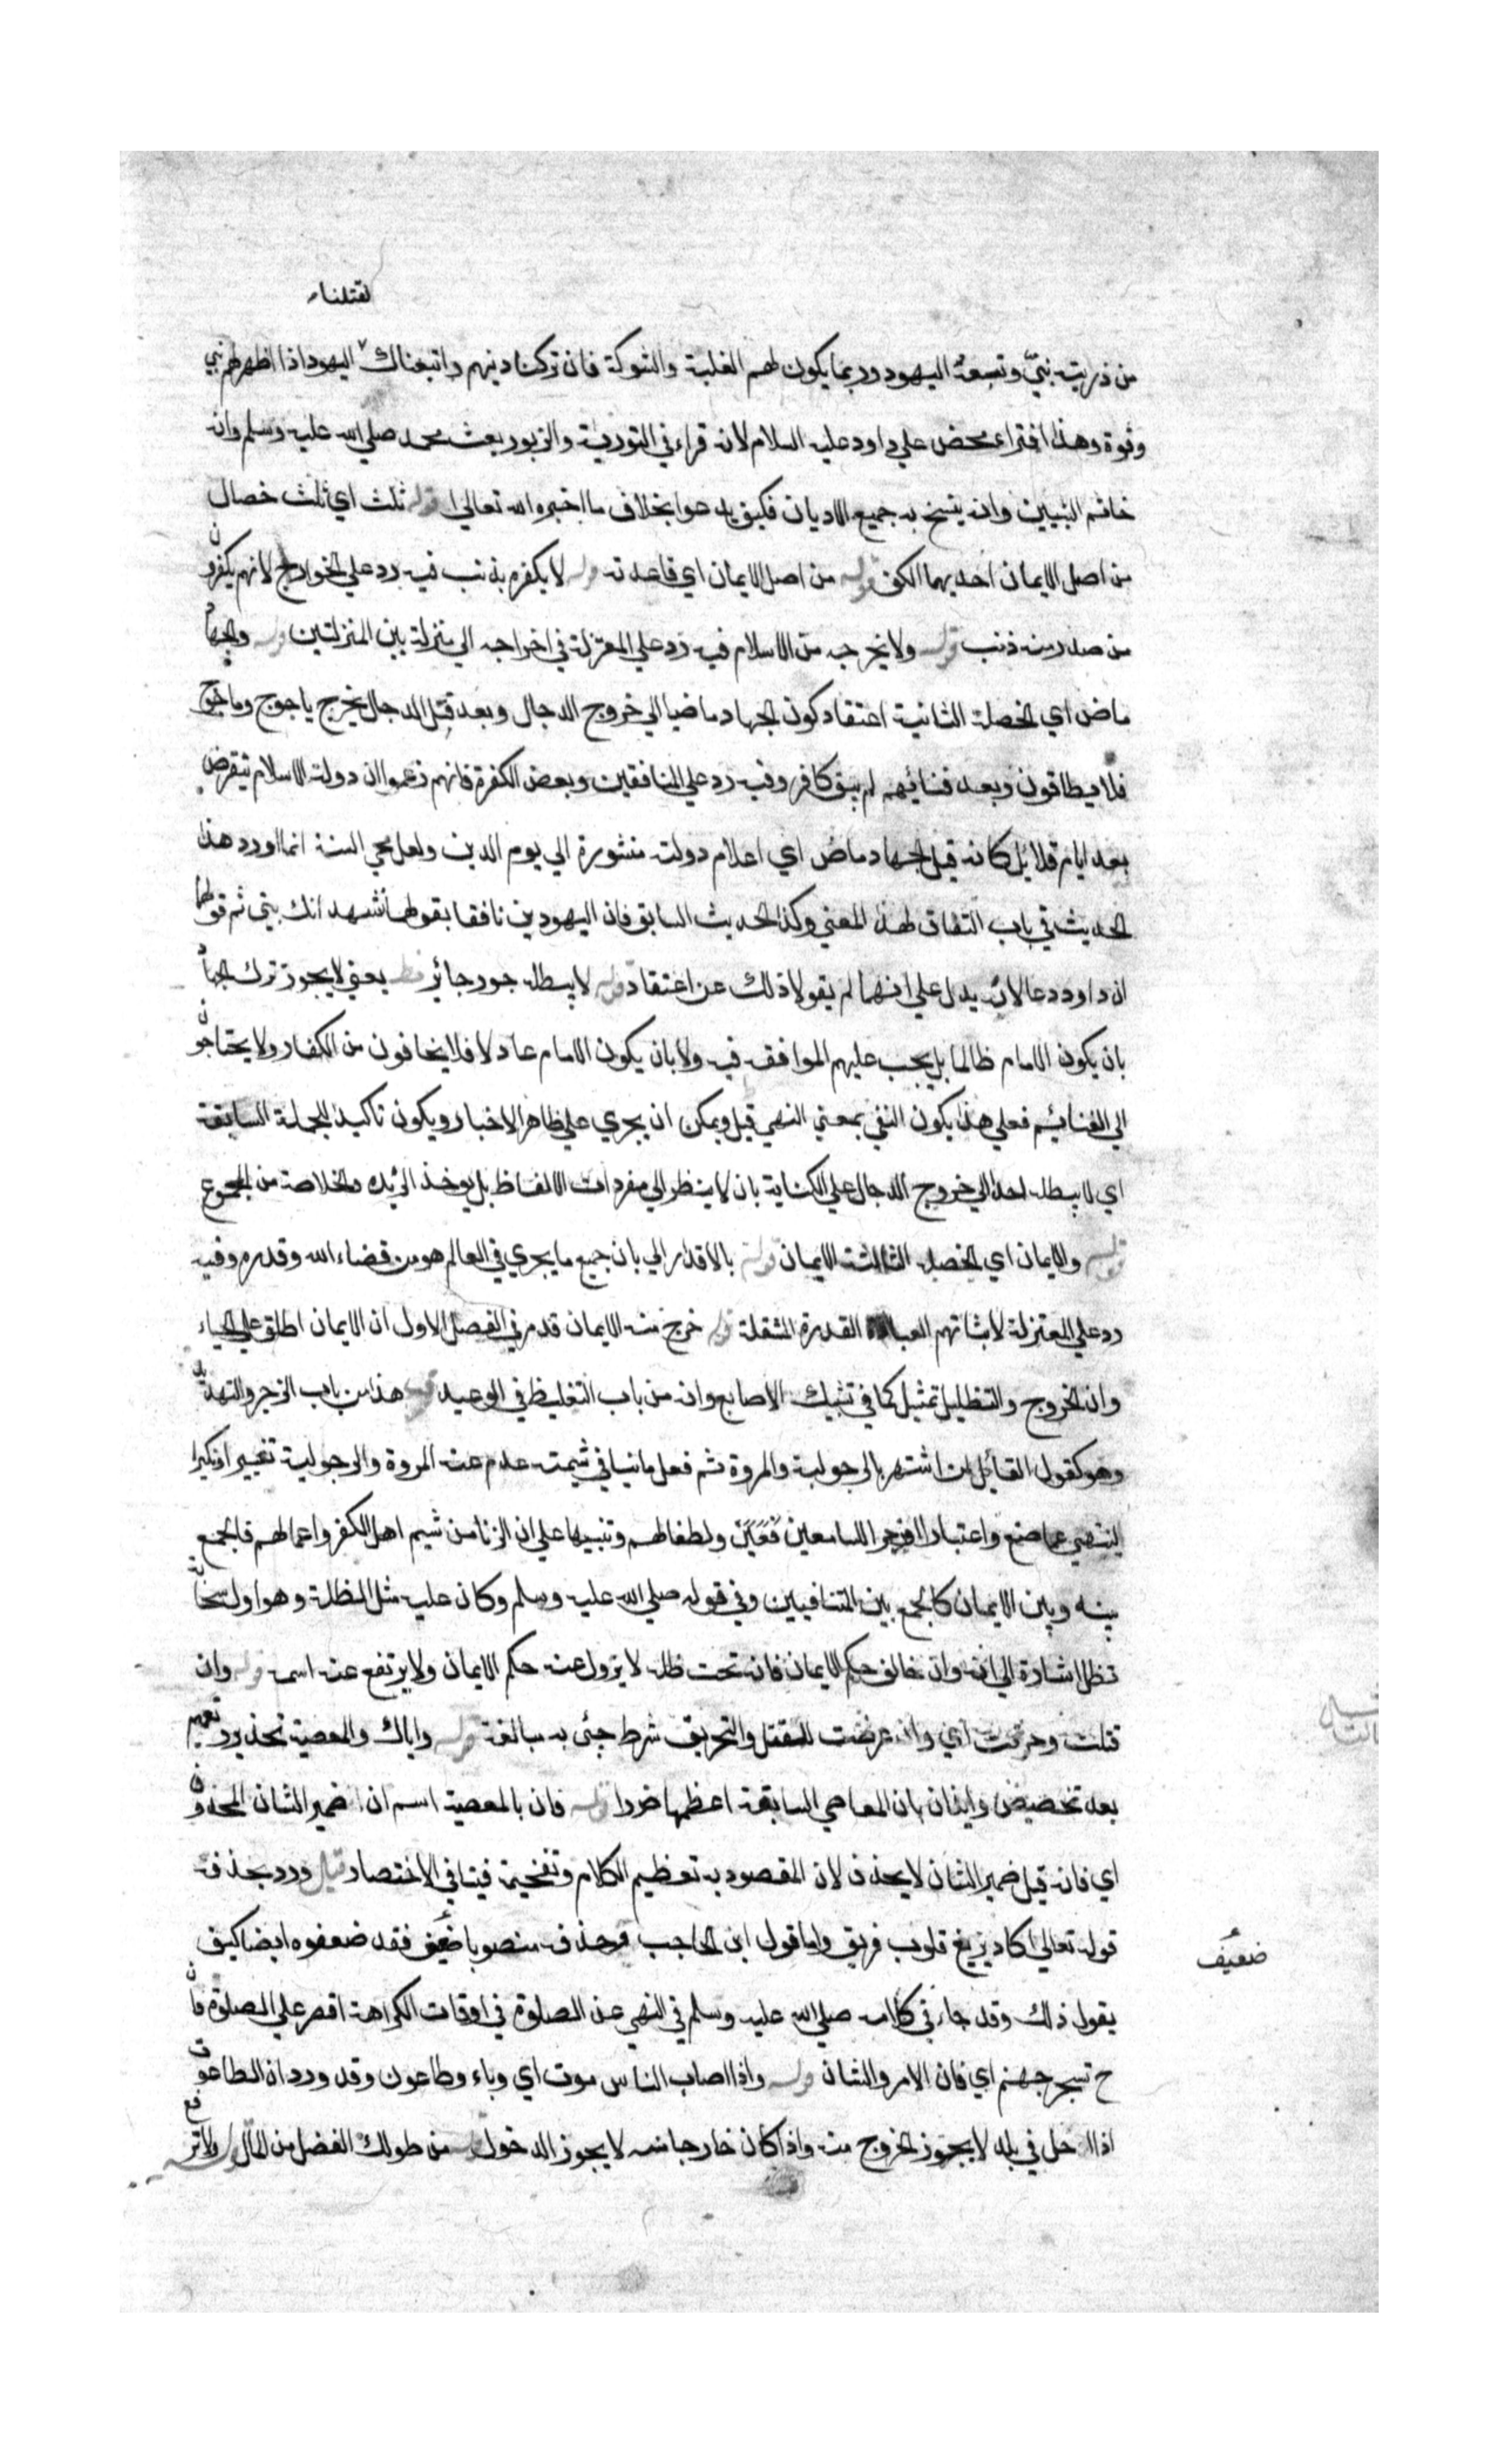 لقتلنا
من ذريته نبي وتبعه اليهود وربما يكون لهم الغلبة والشوكة فان تركنا دينهم واتبعناك اليهود اذا ظهر لهم نبي
وقوة وهذا افتراء محض علي داود عليه السلام لانه قراء في التورية والزبور بعث محمد صلي الله عليه وسلم وانه
خاتم النبيين وانه ينسخ به جميع الاديان فكيف يدعوا بخلاف ما اخبره الله تعالي قوله ثلث اي ثلث خصال
من اصل الايمان احديهما الكف قوله من اصل الايمان اي قاعدته قوله لا يكفره بذنب فيه رد علي الخوارج لانهم يكفرون
من صدر منه ذنب قوله ولا يخرجه من الاسلام فيه رد علي المعتزلة في اخراجه الي منزلة بين المنزلتين قوله والجهاد
ماض اي الخصلة الثانية اعتقاد كون الجهاد ماضيا الي خروج الدجال وبعد قتل الدجال يخرج ياجوج وماجوج
فلا يطاقون وبعد فنائهم لم يبق كافر وفيه رد علي المنافقين وبعض الكفرة فانهم زعموا ان دولة الاسلام تنقرض
بعد ايام قلائل كانه قيل الجهاد ماض اي اعلام دولته منشورة الي يوم الدين ولعل محي السنة انما اورد هذا
الحديث في باب النفاق لهذا المعني وكذا الحديث السابق فان اليهودين نافقا بقولهما نشهد انك نبي ثم قولهما
ان داود دعا لانه يدل علي انهما لم يقولا ذلك عن اعتقاد قوله لا يبطله جور جائر يعني لا يجوز ترك الجهاد
بان يكون الامام ظالما بل يجب عليهم الموافقة فيه ولا بان يكون الامام عادلا فلا يخافون من الكفار ولا يحتاجون
الي الغنائم فعلي هذا يكون النفي بمعني النهي قيل ويمكن ان يجري علي ظاهر الاخبار ويكون تاكيد للجملة السابقة
اي لا يبطله احد الي خروج الدجال علي الكناية بان لا ينظر الي مفردات الالفاظ بل يوخذ الزبدة والخلاصة من المجموع
قوله والايمان اي الخصلة الثالثة الايمان قوله بالاقدار الي بان جميع ما يجري في العالم هو من قضاء الله وقدره وفيه
رد علي المعتزلة لاثباتهم العباد القدرة المستقلة قوله خرج منه الايمان قد مر في الفصل الاول ان الايمان اطلق علي الحياء
وان الخروج والتظليل تمثيل كما في تشبيك الاصابع وانه من باب التغليظ في الوعيد قوله هذا من باب الزجر والتهديد
وهو كقول القائل لمن اشتهر بالرجولية والمروة ثم فعل ما ينافي شيمته عدم عنه المروة والرجولية تغييرا وتكيرا
لينتهي عما صنع واعتبارا وزجرا للسامعين ولطفا لهم وتنبيها علي ان الزنا من شيم اهل الكفر واعمالهم فالجمع
بينه وبين الايمان كالجمع بين المتنافيين وفي قوله صلي الله عليه وسلم وكان عليه مثل الظلة وهو اول سحابة
تظل اشارة الي انه وان خالف حكم الايمان فانه تحت ظله لا يزول عنه حكم الايمان ولا يرتفع عنه اسمه قوله وان
قتلت وحرقت اي وان عرضت للقتل والتحريق شرط جيء به مبالغة قوله واياك والمعصية تحذير وتعميم
بعد تخصيص وايذان بان المعاصي السابقة اعظمها ضررا قوله فان بالمعصية اسم ان ضمير الشان المحذوف
اي فانه قيل ضمير الشان لا يحذف لان المقصود به تعظيم الكلام وتفخيمه فينافي الاختصار قيل ورد بحذفه
قوله تعالي كاد يزيغ قلوب فريق واما قول ابن الحاجب وحذفه منصوبا ضعيف فقد ضعفوه ايضا كيف
ضعيف
يقول ذلك وقد جاء في كلامه صلي الله عليه وسلم في النهي عن الصلوة في اوقات الكراهة اقصر علي الصلوة فان
ح تسجر جهنم اي فان الامر والشان قوله واذا اصاب الناس موت اي وباء وطاعون وقد ورد ان الطاعون
اذا دخل في بلد لا يجوز الخروج منه واذا كان خارجا منه لا يجوز الدخول قوله من طولك الفضل من المال قوله ولا ترفع